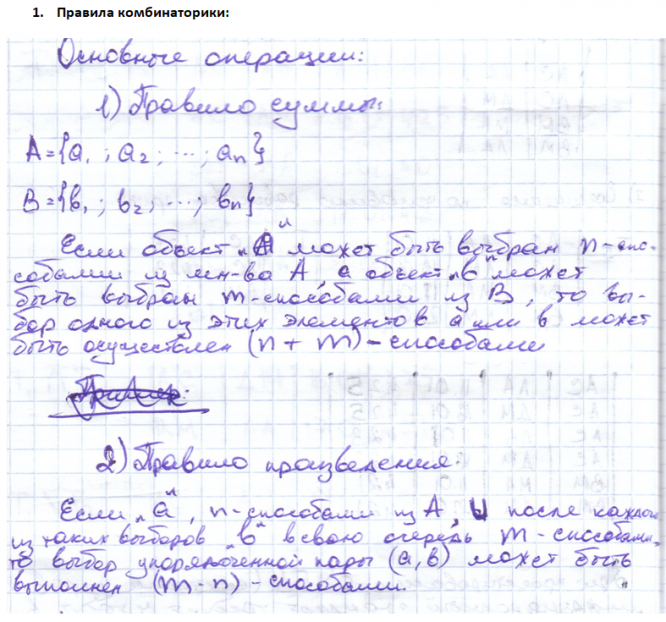 1. Правила комбинаторики:
Основные операции:
1) Правило суммы:
A={a₁; a₂; ...; aₙ}
B={b₁; b₂; ...; bₙ}
Если объект „а“ может быть выбран n-спо-
собами из мн-ва A, а объект „в“ может
быть выбран m-способами из B, то вы-
бор одного из этих элементов а или в может
быть осуществлен (n + m) - способами
Пример:
2) Правило произведения.
Если „а“, n-способами из A, и после каждого
из таких выборов „в“ в свою очередь m-способами
то выбор упорядоченной пары (а, в) может быть
выполнен (m · n) - способами.